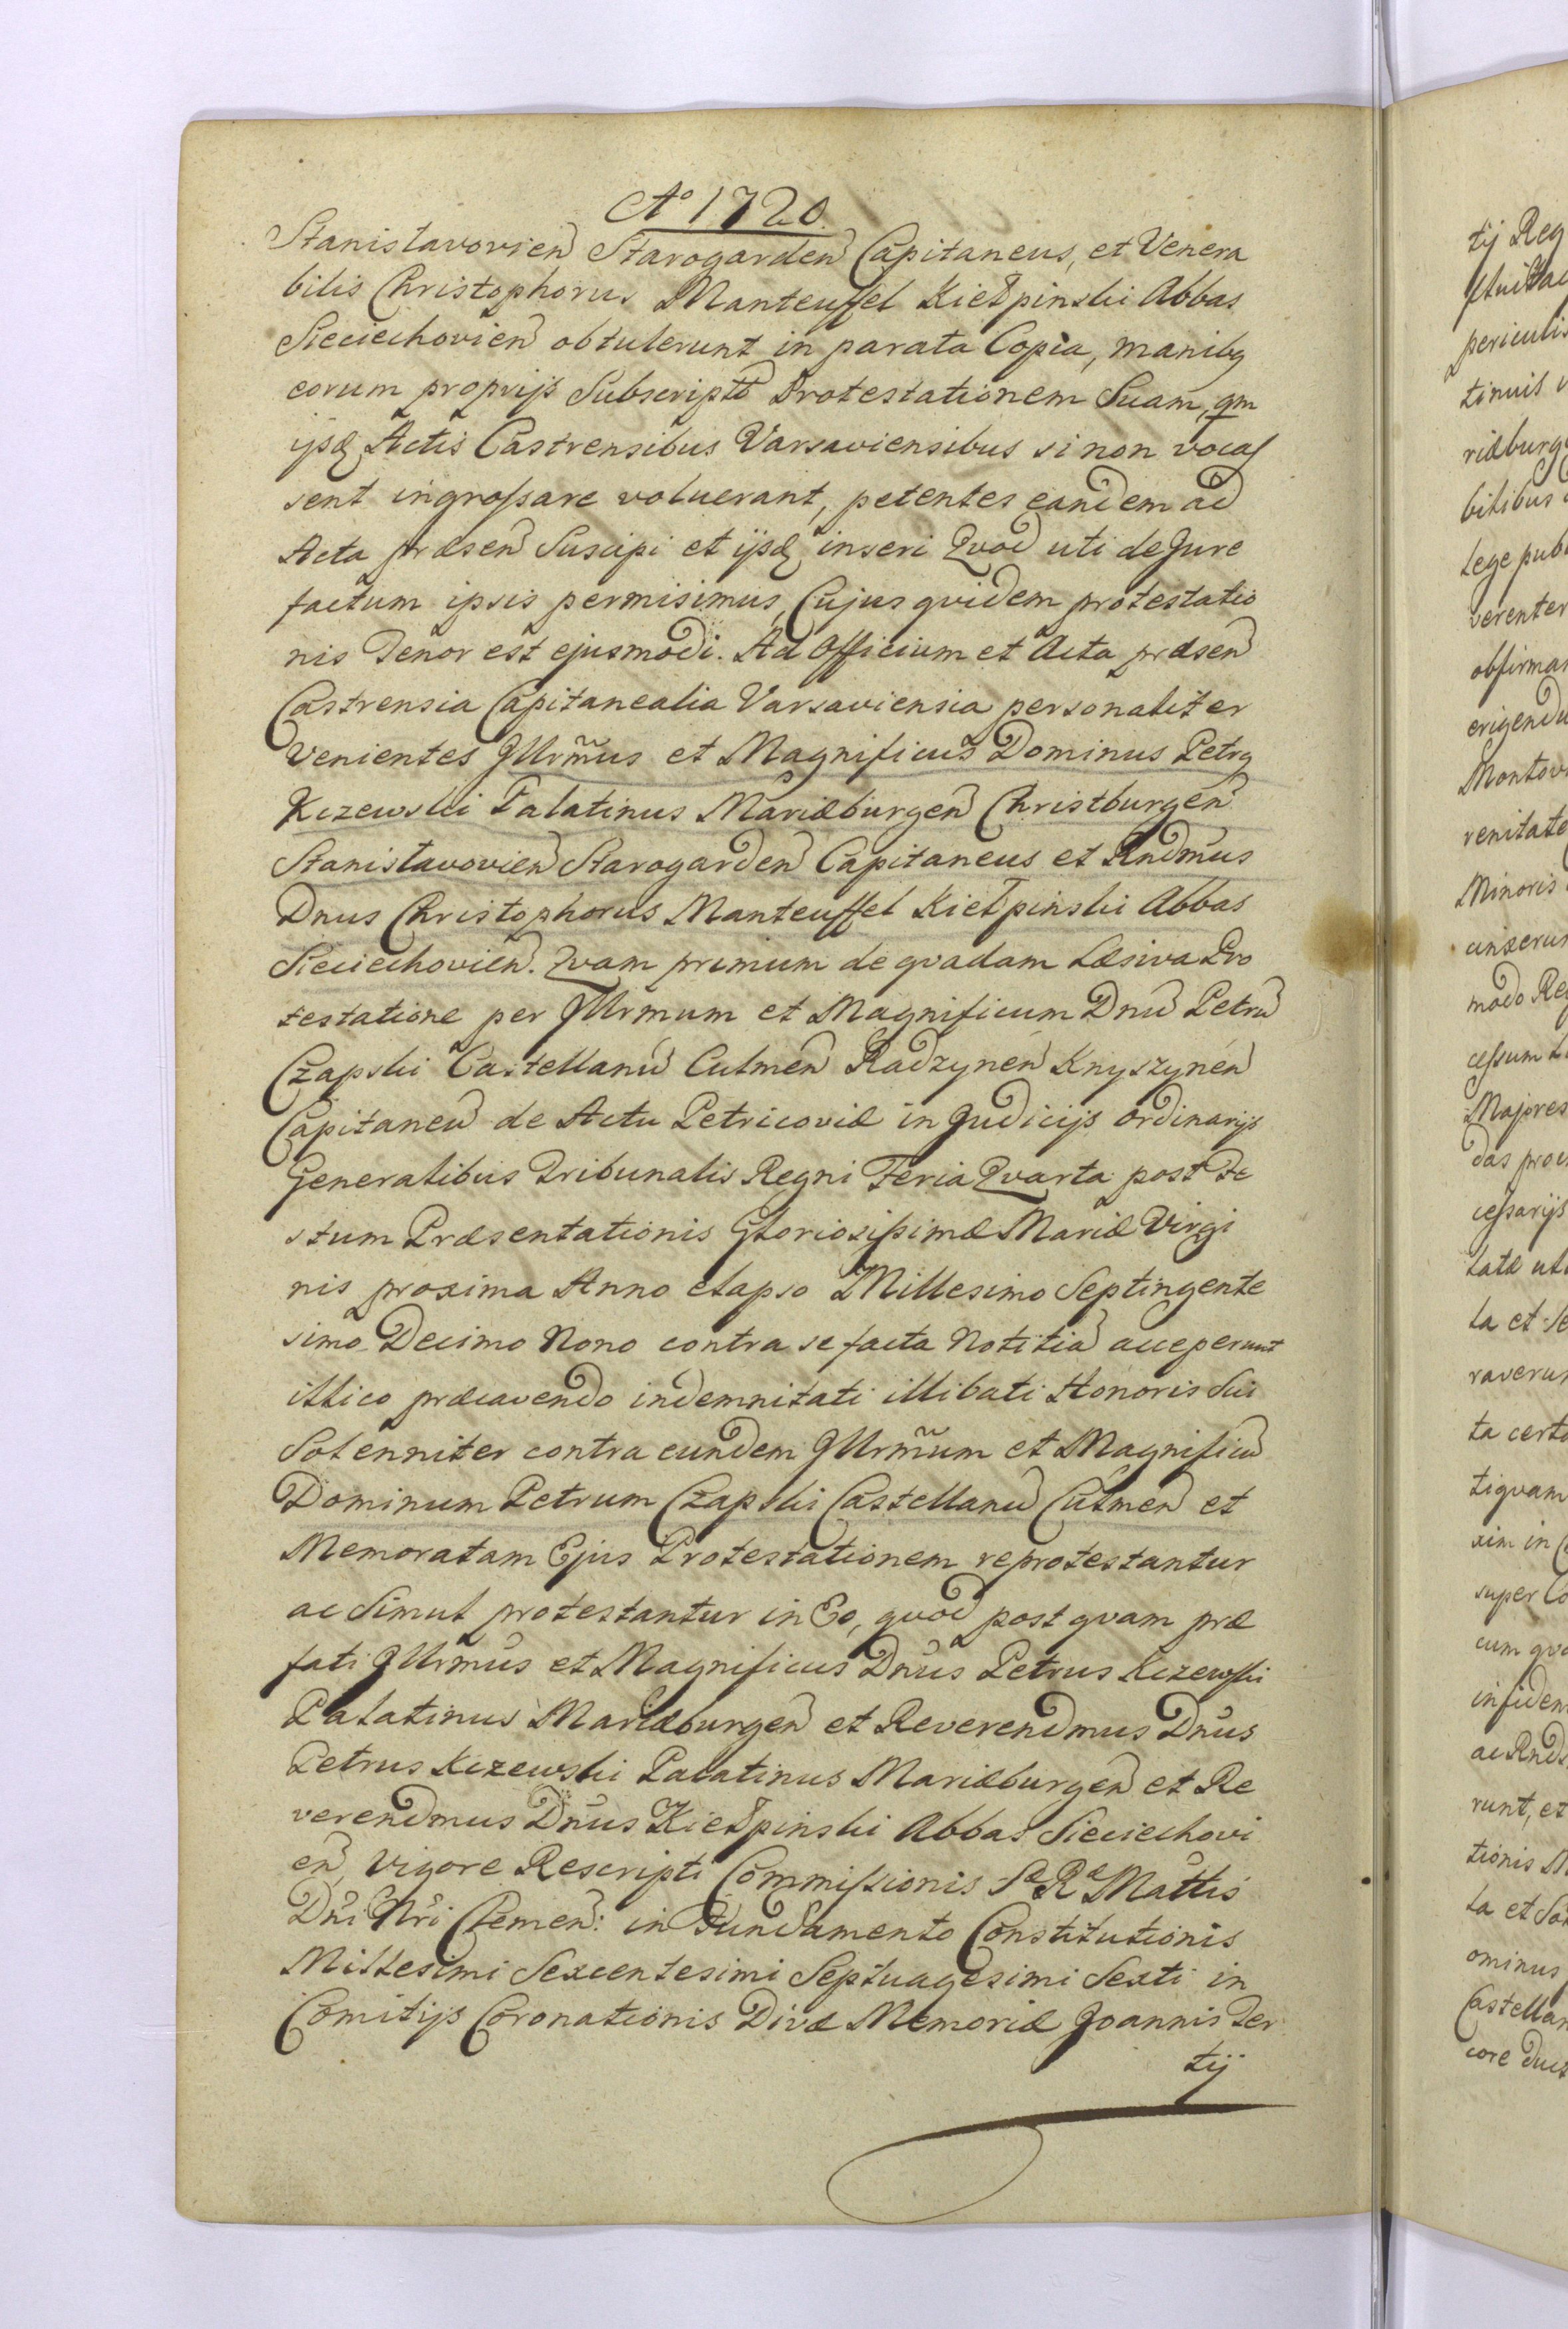 Aº 1720.
Stanisłavovien Starogarden Capitaneus, et Venera
bilis Christophorus Manteuffel Kiełpinski Abbas
Sieciechovien obtulerunt in parata Copia, manibg
eorum proprijs Subscriptã Protestationem Suam, qm
ijsdẽ Actis Castrensibus Varsaviensibus si non vocas
sent ingrossare voluerant, petentes eandem ad
Acta præsen Suscipi et ijsdẽ inseri Qvod uti de Jure
factum ipsis permisimus, Cujus qvidem protestatio
nis Tenor est ejusmodi. Ad Officium et Acta præsen
Castrensia Capitanealia Varsaviensia personaliter
Venientes Jllrm̃us et Magnificus Dominus Petrg
Kczewski Palatinus Mariæburgen Christburgen
Stanisłavovien Starogarden Capitaneus et Rndmus
Dnus Christophorus Manteuffel Kiełpinski Abbas
Sieciechovien. Qvam primum de qvadam Læsiva Pro
testatione per Jllrmum et Magnificum Dnũ Petrũ
Czapski Castellanũ Culmen Radzynen Knyszynen
Capitaneũ de Actu Petricoviæ in Judicijs ordinarijs
Generalibus Tribunalis Regni Feria Qvarta post Fe
stum Præsentationis Gloriosissimæ Mariæ Virgi
nis proxima Anno elapso Millesimo Septingente
simo Decimo Nono contra se facta Notitiã acceperunt
illico præcavendo indemnitati illibati Honoris Sui
Solenniter contra eundem Jllrm̃um et Magnificũ
Dominum Petrum Czapski Castellanũ Culmen et
Memoratam Ejus Protestationem reprotestantur
ac Simul protestantur in Eo, qvod post qvam præ
fati Jllrmus et Magnificus Dnus Petrus Kczewski
Palatinus Mariæburgen et Reverendmus Dnus
Petrus Kczewski Palatinus Mariæburgen et Re
verendmus Dnus Kiełpinski Abbas Sieciechovi
en, Vigore Rescripti Commissionis Sæ Ræ Mattis
Dñi Nri Clemen: in Fundamento Constitutionis
Millesimi Sexcentesimi Septuagesimi Sexti in
Comitijs Coronationis Divæ Memoriæ Joannis Ter
tij
tij Reg
periculis
tinuis
riæburg
bilibus
Lege pub
verenter
obfirma
erigendu
Montov
renitate
Minoris
cinxerun
modo Re
cessum L
Majores
das pro
cessarijs
latæ ut
la et Se
raverun
ta certo
tiqvam
xim in
super Co
cum qvo
infiden
ac Rnds
runt, et
tionis M
la et So
ominus
Castellan
core duct